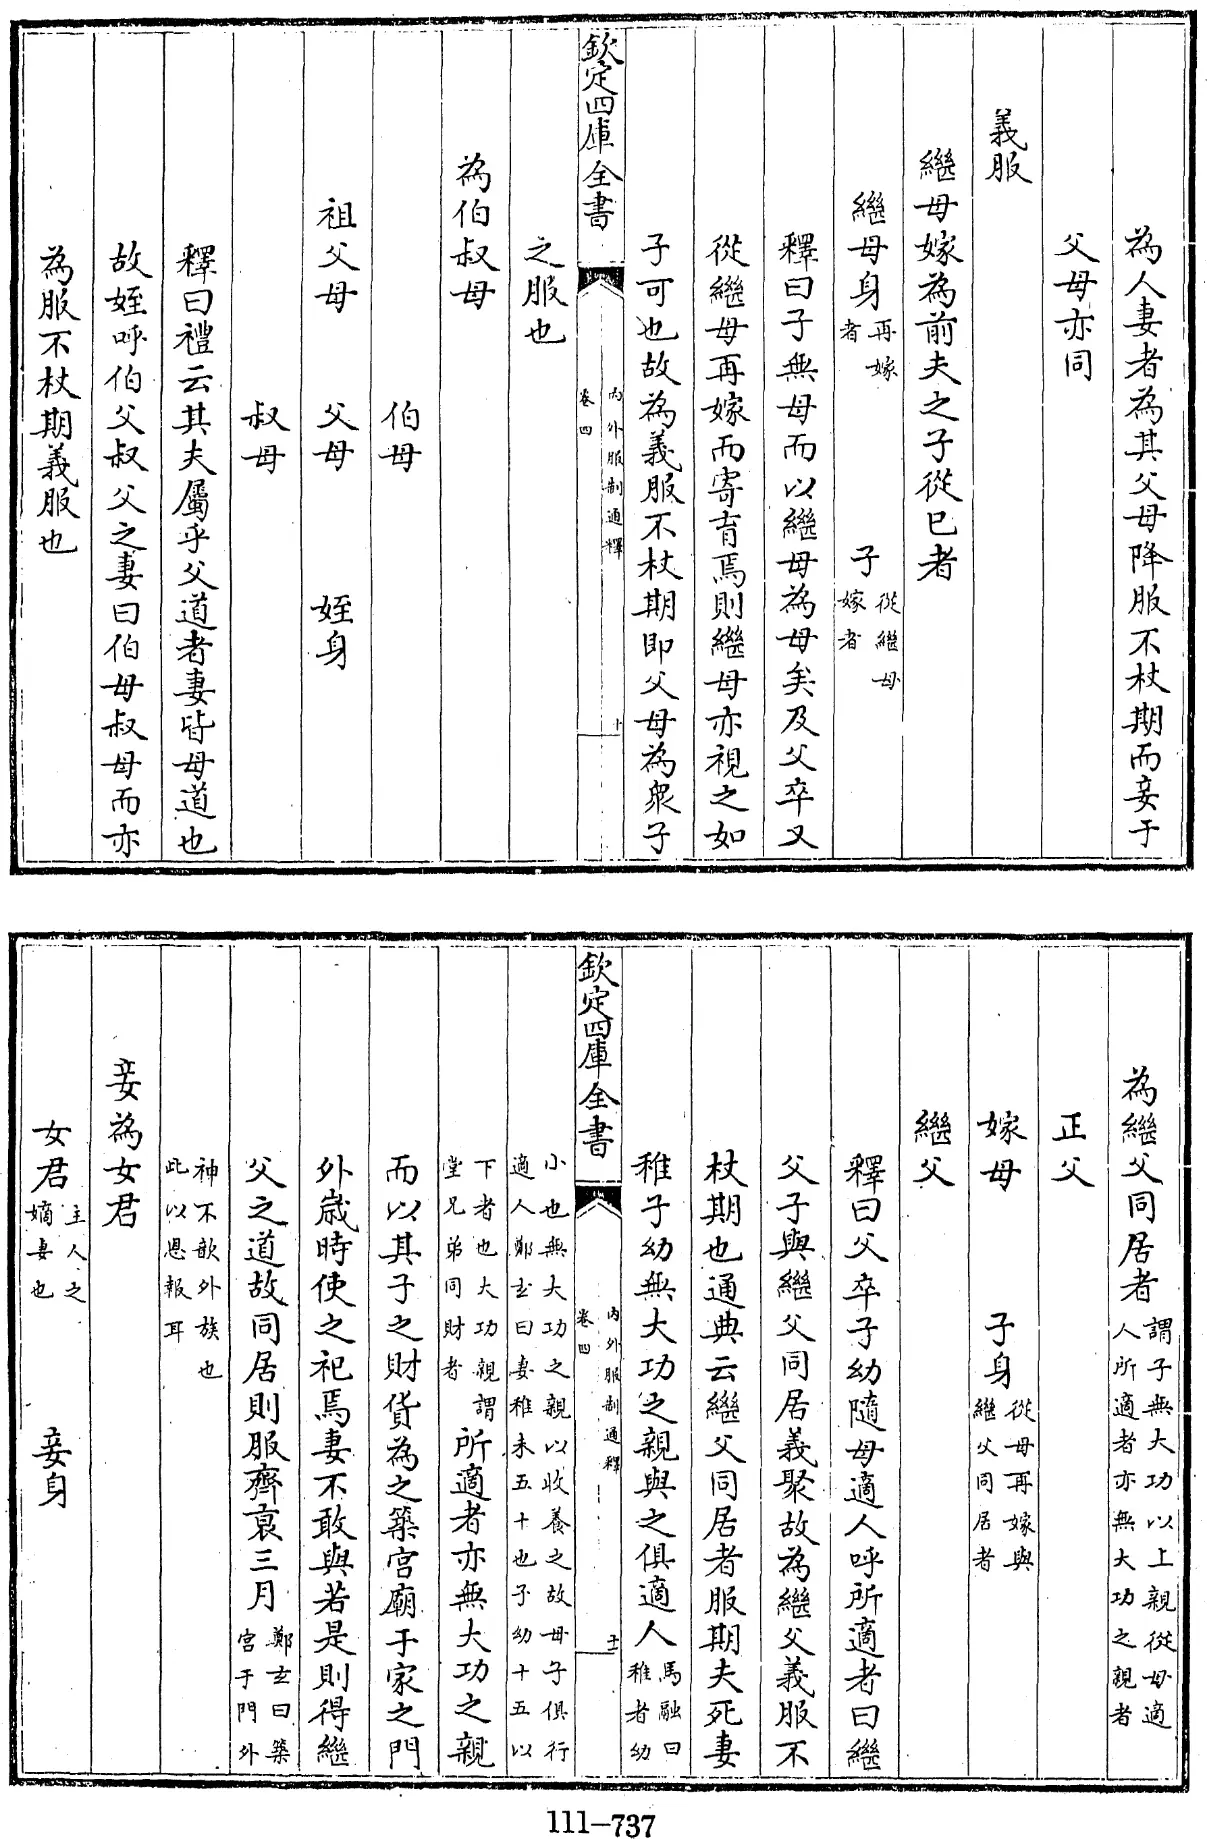 為人妻者為其父母降服不杖期而妾于
父母亦同
義服
繼母嫁為前夫之子從已者
繼母身再嫁者 子從繼母嫁者
釋曰子無母而以繼母為母矣及父卒又
從繼母再嫁而寄育焉則繼母亦視之如
子可也故為義服不杖期即父母為衆子
欽定四庫全書 內外服制通釋 卷四 十
之服也
為伯叔母
伯母
祖父母 父母 姪身
叔母
釋曰禮云其夫屬乎父道者妻皆母道也
故姪呼伯父叔父之妻曰伯母叔母而亦
為服不杖期義服也
為繼父同居者謂子無大功以上親從母適人所適者亦無大功之親者
正父
嫁母 子身從母再嫁與繼父同居者
繼父
釋曰父卒子幼隨母適人呼所適者曰繼
父子與繼父同居義聚故為繼父義服不
杖期也通典云繼父同居者服期夫死妻
稚子幼無大功之親與之俱適人馬融曰稚者幼
欽定四庫全書 內外服制通釋 卷四 十一
小也無大功之親以收養之故母子俱行適人鄭玄曰妻稚未五十也子幼十五以
下者也大功親謂堂兄弟同財者所適者亦無大功之親
而以其子之財貨為之築宮廟于家之門
外歲時使之祀焉妻不敢與若是則得繼
父之道故同居則服齊衰三月鄭玄曰築宮于門外
神不歆外族也此以恩報耳
妾為女君
女君主人之嫡妻也 妾身
111-737